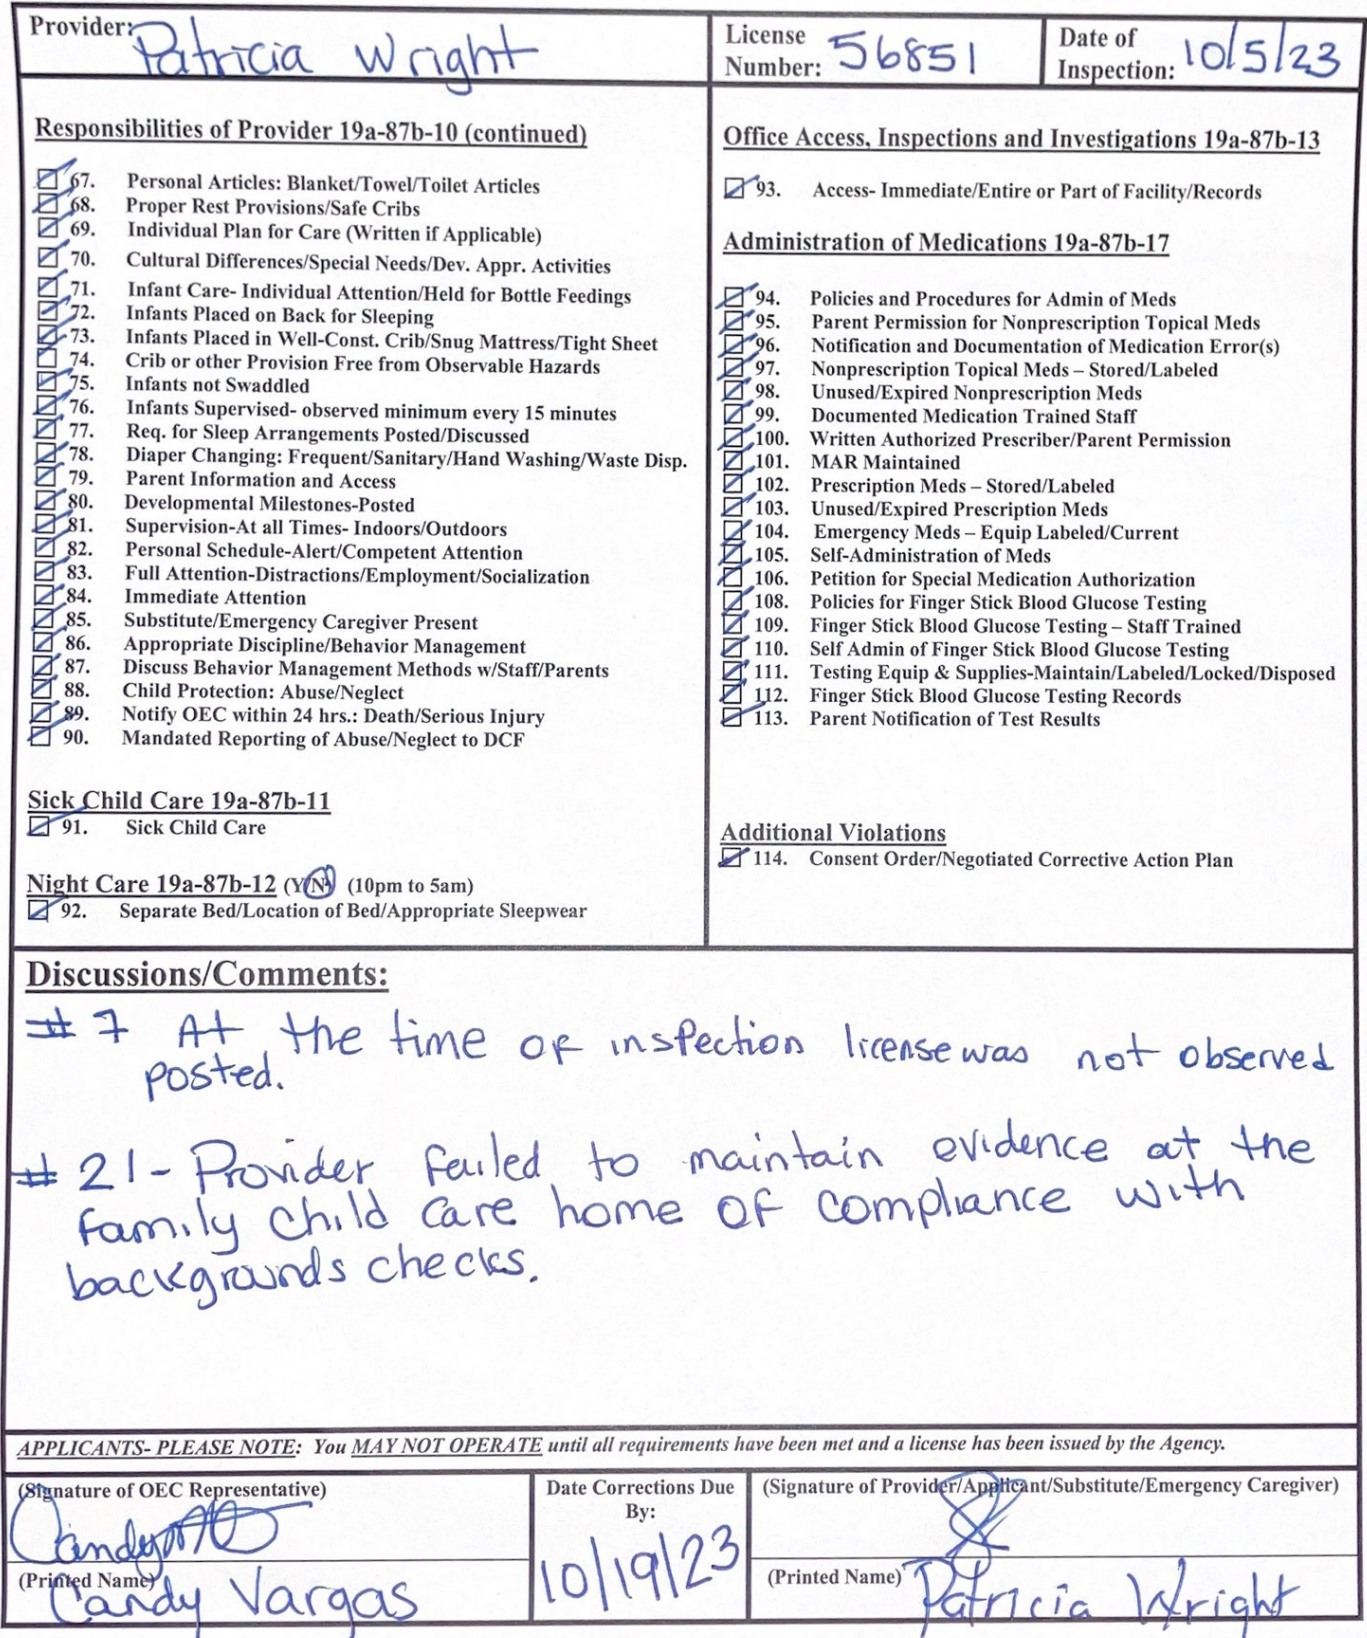 Provider: Patricia Wright
License Number: 56851
Date of Inspection: 10/5/23
Responsibilities of Provider 19a-87b-10 (continued)
67. Personal Articles: Blanket/Towel/Toilet Articles
68. Proper Rest Provisions/Safe Cribs
69. Individual Plan for Care (Written if Applicable)
70. Cultural Differences/Special Needs/Dev. Appr. Activities
71. Infant Care- Individual Attention/Held for Bottle Feedings
72. Infants Placed on Back for Sleeping
73. Infants Placed in Well-Const. Crib/Snug Mattress/Tight Sheet
74. Crib or other Provision Free from Observable Hazards
75. Infants not Swaddled
76. Infants Supervised- observed minimum every 15 minutes
77. Req. for Sleep Arrangements Posted/Discussed
78. Diaper Changing: Frequent/Sanitary/Hand Washing/Waste Disp.
79. Parent Information and Access
80. Developmental Milestones-Posted
81. Supervision-At all Times- Indoors/Outdoors
82. Personal Schedule-Alert/Competent Attention
83. Full Attention-Distractions/Employment/Socialization
84. Immediate Attention
85. Substitute/Emergency Caregiver Present
86. Appropriate Discipline/Behavior Management
87. Discuss Behavior Management Methods w/Staff/Parents
88. Child Protection: Abuse/Neglect
89. Notify OEC within 24 hrs.: Death/Serious Injury
90. Mandated Reporting of Abuse/Neglect to DCF
Sick Child Care 19a-87b-11
91. Sick Child Care
Night Care 19a-87b-12 (Y/N) (10pm to 5am)
92. Separate Bed/Location of Bed/Appropriate Sleepwear
Office Access, Inspections and Investigations 19a-87b-13
93. Access- Immediate/Entire or Part of Facility/Records
Administration of Medications 19a-87b-17
94. Policies and Procedures for Admin of Meds
95. Parent Permission for Nonprescription Topical Meds
96. Notification and Documentation of Medication Error(s)
97. Nonprescription Topical Meds – Stored/Labeled
98. Unused/Expired Nonprescription Meds
99. Documented Medication Trained Staff
100. Written Authorized Prescriber/Parent Permission
101. MAR Maintained
102. Prescription Meds – Stored/Labeled
103. Unused/Expired Prescription Meds
104. Emergency Meds – Equip Labeled/Current
105. Self-Administration of Meds
106. Petition for Special Medication Authorization
108. Policies for Finger Stick Blood Glucose Testing
109. Finger Stick Blood Glucose Testing – Staff Trained
110. Self Admin of Finger Stick Blood Glucose Testing
111. Testing Equip & Supplies-Maintain/Labeled/Locked/Disposed
112. Finger Stick Blood Glucose Testing Records
113. Parent Notification of Test Results
Additional Violations
114. Consent Order/Negotiated Corrective Action Plan
Discussions/Comments:
# 7 At the time of inspection license was not observed
posted.
# 21- Provider failed to maintain evidence at the
family child care home of compliance with
backgrounds checks.
APPLICANTS- PLEASE NOTE: You MAY NOT OPERATE until all requirements have been met and a license has been issued by the Agency.
(Signature of OEC Representative)
Candy
(Printed Name)
Candy Vargas
Date Corrections Due
By:
10/19/23
(Signature of Provider/Applicant/Substitute/Emergency Caregiver)
(Printed Name) Patricia Wright